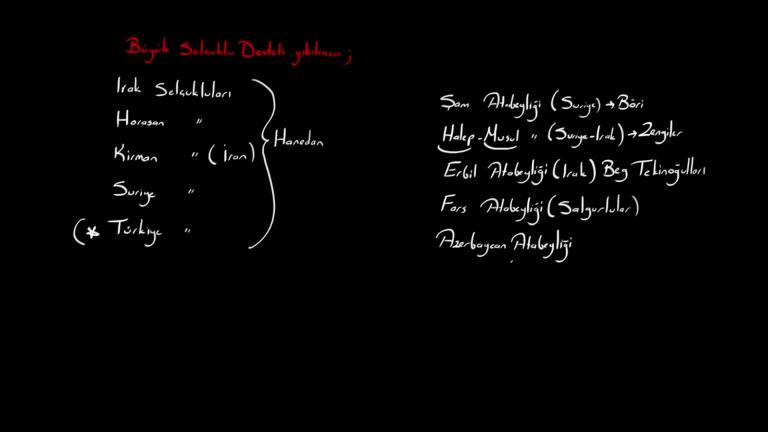 Büyük Selçuklu Devleti yıkılınca;
Irak Selçukluları
Horasan "
Kirman " (İran)
Suriye "
(* Türkiye "
Hanedan
Şam Atabeyliği (Suriye) → Böri
Halep-Musul " (Suriye-Irak) → Zengiler
Erbil Atabeyliği (Irak) Beg Tekinoğulları
Fars Atabeyliği (Salgurlular)
Azerbaycan Atabeyliği